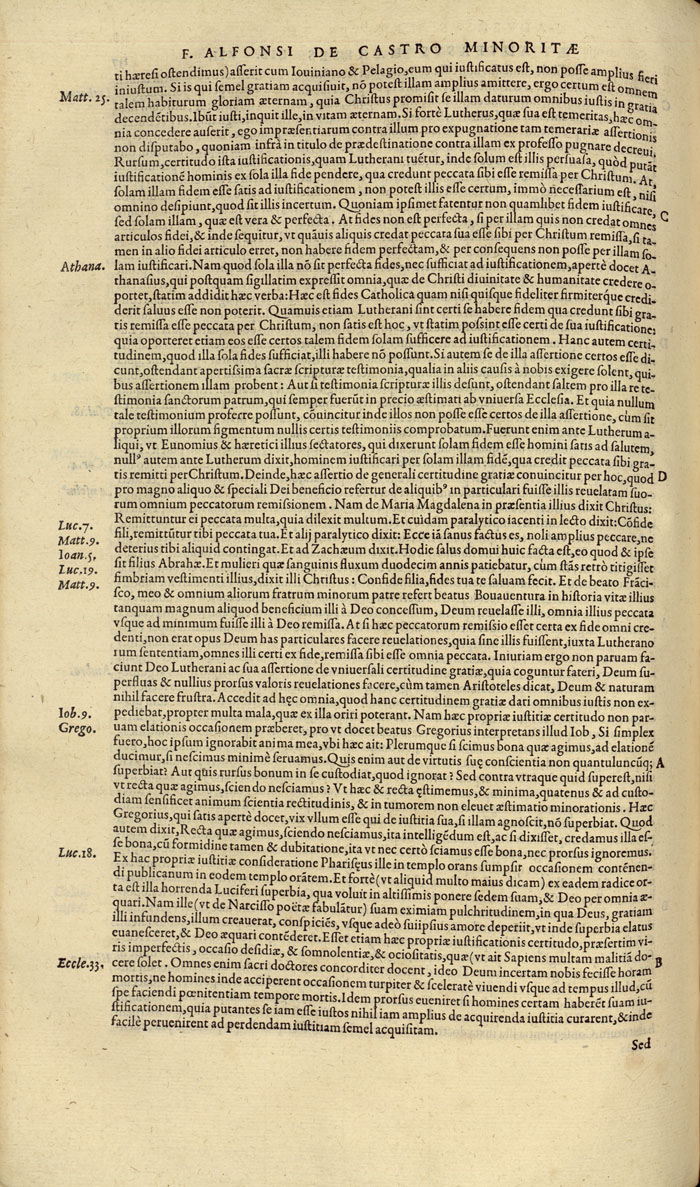 F. ALFONSI DE CASTRO MINORITÆ
ti hæresi ostendimus) asserit cum Iouiniano & Pelagio, eum qui iustificatus est, non posse amplius fieri
iniustum. Si is qui semel gratiam acquisiuit, nō potest illam amplius amittere, ergo certum est omnem
Matt. 25.
talem habiturum gloriam æternam, quia Christus promisit se illam daturum omnibus iustis in gratia
decendētibus. Ibūt iusti, inquit ille, in vitam æternam. Si fortè Lutherus, quæ sua est temeritas, hæc om-
nia concedere auserit, ego impræsentiarum contra illum pro expugnatione tam temerariæ assertionis
non disputabo, quoniam infrà in titulo de prædestinatione contra illam ex professo pugnare decreui.
Rursum, certitudo ista iustificationis, quam Lutherani tuētur, inde solum est illis persuasa, quòd putāt
iustificationē hominis ex sola illa fide pendere, qua credunt peccata sibi esse remissa per Christum. At,
solam illam fidem esse satis ad iustificationem, non potest illis esse certum, immò necessarium est, nisi
omnino desipiunt, quod sit illis incertum. Quoniam ipsimet fatentur non quamlibet fidem iustificare,
C
sed solam illam, quæ est vera & perfecta. At fides non est perfecta, si per illam quis non credat omnes
articulos fidei, & inde sequitur, vt quāuis aliquis credat peccata sua esse sibi per Christum remissa, si ta-
men in alio fidei articulo erret, non habere fidem perfectam, & per consequens non posse per illam so-
Athana.
lam iustificari. Nam quod sola illa nō sit perfecta fides, nec sufficiat ad iustificationem, apertè docet A-
thanasius, qui postquam sigillatim expressit omnia, quæ de Christi diuinitate & humanitate credere o-
portet, statim addidit hæc verba: Hæc est fides Catholica quam nisi quisque fideliter firmiterque credi-
derit saluus esse non poterit. Quamuis etiam Lutherani sint certi se habere fidem qua credunt sibi gra-
tis remissa esse peccata per Christum, non satis est hoc, vt statim possint esse certi de sua iustificatione:
quia oporteret etiam eos esse certos talem fidem solam sufficere ad iustificationem. Hanc autem certi-
tudinem, quod illa sola fides sufficiat, illi habere nō possunt. Si autem se de illa assertione certos esse di-
cunt, ostendant apertissima sacræ scripturæ testimonia, qualia in aliis causis à nobis exigere solent, qui-
bus assertionem illam probent: Aut si testimonia scripturæ illis desunt, ostendant saltem pro illa re te-
stimonia sanctorum patrum, qui semper fuerūt in precio æstimati ab vniuersa Ecclesia. Et quia nullum
tale testimonium proferre possunt, cōuincitur inde illos non posse esse certos de illa assertione, cùm sit
proprium illorum figmentum nullis certis testimoniis comprobatum. Fuerunt enim ante Lutherum a-
liqui, vt Eunomius & hæretici illius sectatores, qui dixerunt solam fidem esse homini satis ad salutem,
null⁹ autem ante Lutherum dixit, hominem iustificari per solam illam fidē, qua credit peccata sibi gra-
tis remitti per Christum. Deinde, hæc assertio de generali certitudine gratiæ conuincitur per hoc, quod
D
pro magno aliquo & speciali Dei beneficio refertur de aliquib⁹ in particulari fuisse illis reuelatam suo-
rum omnium peccatorum remissionem. Nam de Maria Magdalena in præsentia illius dixit Christus:
Luc. 7.
Remittuntur ei peccata multa, quia dilexit multum. Et cuidam paralytico iacenti in lecto dixit: Cōfide
Matt. 9.
fili, remittūtur tibi peccata tua. Et alij paralytico dixit: Ecce iā sanus factus es, noli amplius peccare, ne
Ioan. 5.
deterius tibi aliquid contingat. Et ad Zachæum dixit. Hodie salus domui huic facta est, eo quod & ipse
Luc. 19.
sit filius Abrahæ. Et mulieri quæ sanguinis fluxum duodecim annis patiebatur, cùm stās retrò titigisset
Matt. 9.
fimbriam vestimenti illius, dixit illi Christus: Confide filia, fides tua te saluam fecit. Et de beato Frāci-
sco, meo & omnium aliorum fratrum minorum patre refert beatus Bouauentura in historia vitæ illius
tanquam magnum aliquod beneficium illi à Deo concessum, Deum reuelasse illi, omnia illius peccata
vsque ad minimum fuisse illi à Deo remissa. At si hæc peccatorum remissio esset certa ex fide omni cre-
denti, non erat opus Deum has particulares facere reuelationes, quia sine illis fuissent, iuxta Lutherano
rum sententiam, omnes illi certi ex fide, remissa sibi esse omnia peccata. Iniuriam ergo non paruam fa-
ciunt Deo Lutherani ac sua assertione de vniuersali certitudine gratiæ, quia coguntur fateri, Deum su-
perfluas & nullius prorsus valoris reuelationes facere, cùm tamen Aristoteles dicat, Deum & naturam
nihil facere frustra. Accedit ad hęc omnia, quod hanc certitudinem gratiæ dati omnibus iustis non ex-
Iob. 9.
pediebat, propter multa mala, quæ ex illa oriri poterant. Nam hæc propriæ iustitiæ certitudo non par-
Grego.
uam elationis occasionem præberet, pro vt docet beatus Gregorius interpretans illud Iob, Si simplex
fuero, hoc ipsum ignorabit anima mea, vbi hæc ait: Plerumque si scimus bona quæ agimus, ad elationē
ducimur, si nescimus minimè seruamus. Quis enim aut de virtutis suę conscientia non quantuluncūq;
A
superbiat? Aut quis rursus bonum in se custodiat, quod ignorat? Sed contra vtraque quid superest, nisi
vt recta quæ agimus, sciendo nesciamus? Vt hæc & recta ęstimemus, & minima, quatenus & ad custo-
diam sensificet animum scientia rectitudinis, & in tumorem non eleuet æstimatio minorationis. Hæc
Gregorius, qui satis apertè docet, vix vllum esse qui de iustitia sua, si illam agnoscit, nō superbiat. Quod
autem dixit, Recta quæ agimus, sciendo nesciamus, ita intelligēdum est, ac si dixisset, credamus illa es-
se bona, cū formidine tamen & dubitatione, ita vt nec certò sciamus esse bona, nec prorsus ignoremus.
Luc. 18.
Ex hac propriæ iustitiæ consideratione Pharisęus ille in templo orans sumpsit occasionem contēnen-
di publicanum in eodem templo orātem. Et fortè (vt aliquid multo maius dicam) ex eadem radice or-
ta est illa horrenda Luciferi superbia, qua voluit in altissimis ponere sedem suam, & Deo per omnia æ-
quari. Nam ille (vt de Narcisso poëtæ fabulātur) suam eximiam pulchritudinem, in qua Deus, gratiam
illi infundens, illum creauerat, conspiciēs, vsque adeò suiipsius amore deperiit, vt inde superbia elatus
euanesceret, & Deo æquari contēderet. Esset etiam hæc propriæ iustificationis certitudo, præsertim vi-
ris imperfectis, occasio desidiæ, & somnolentiæ, & ociositatis, quæ (vt ait Sapiens multam malitiā do-
Eccle. 33.
cere solet. Omnes enim sacri doctores concorditer docent, ideo Deum incertam nobis fecisse horam
B
mortis, ne homines inde acciperent occasionem turpiter & sceleratè viuendi vsque ad tempus illud, cū
spe faciendi pœnitentiam tempore mortis. Idem prorsus eueniret si homines certam haberēt suam iu-
stificationem, quia putantes se iam esse iustos nihil iam amplius de acquirenda iustitia curarent, & inde
facilè peruenirent ad perdendam iustitiam semel acquisitam.
Sed